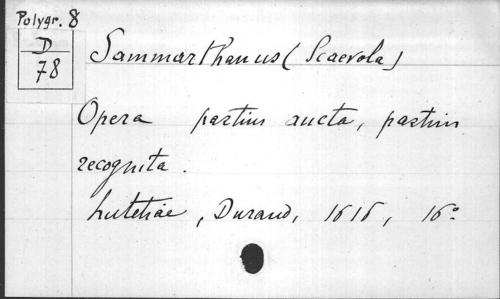 Polygr. 8
D
78
Sammarthanus (Scaevola)
Opera partim aucta, partim
recognita.
Lutetiae, Durand, 1616, 16º